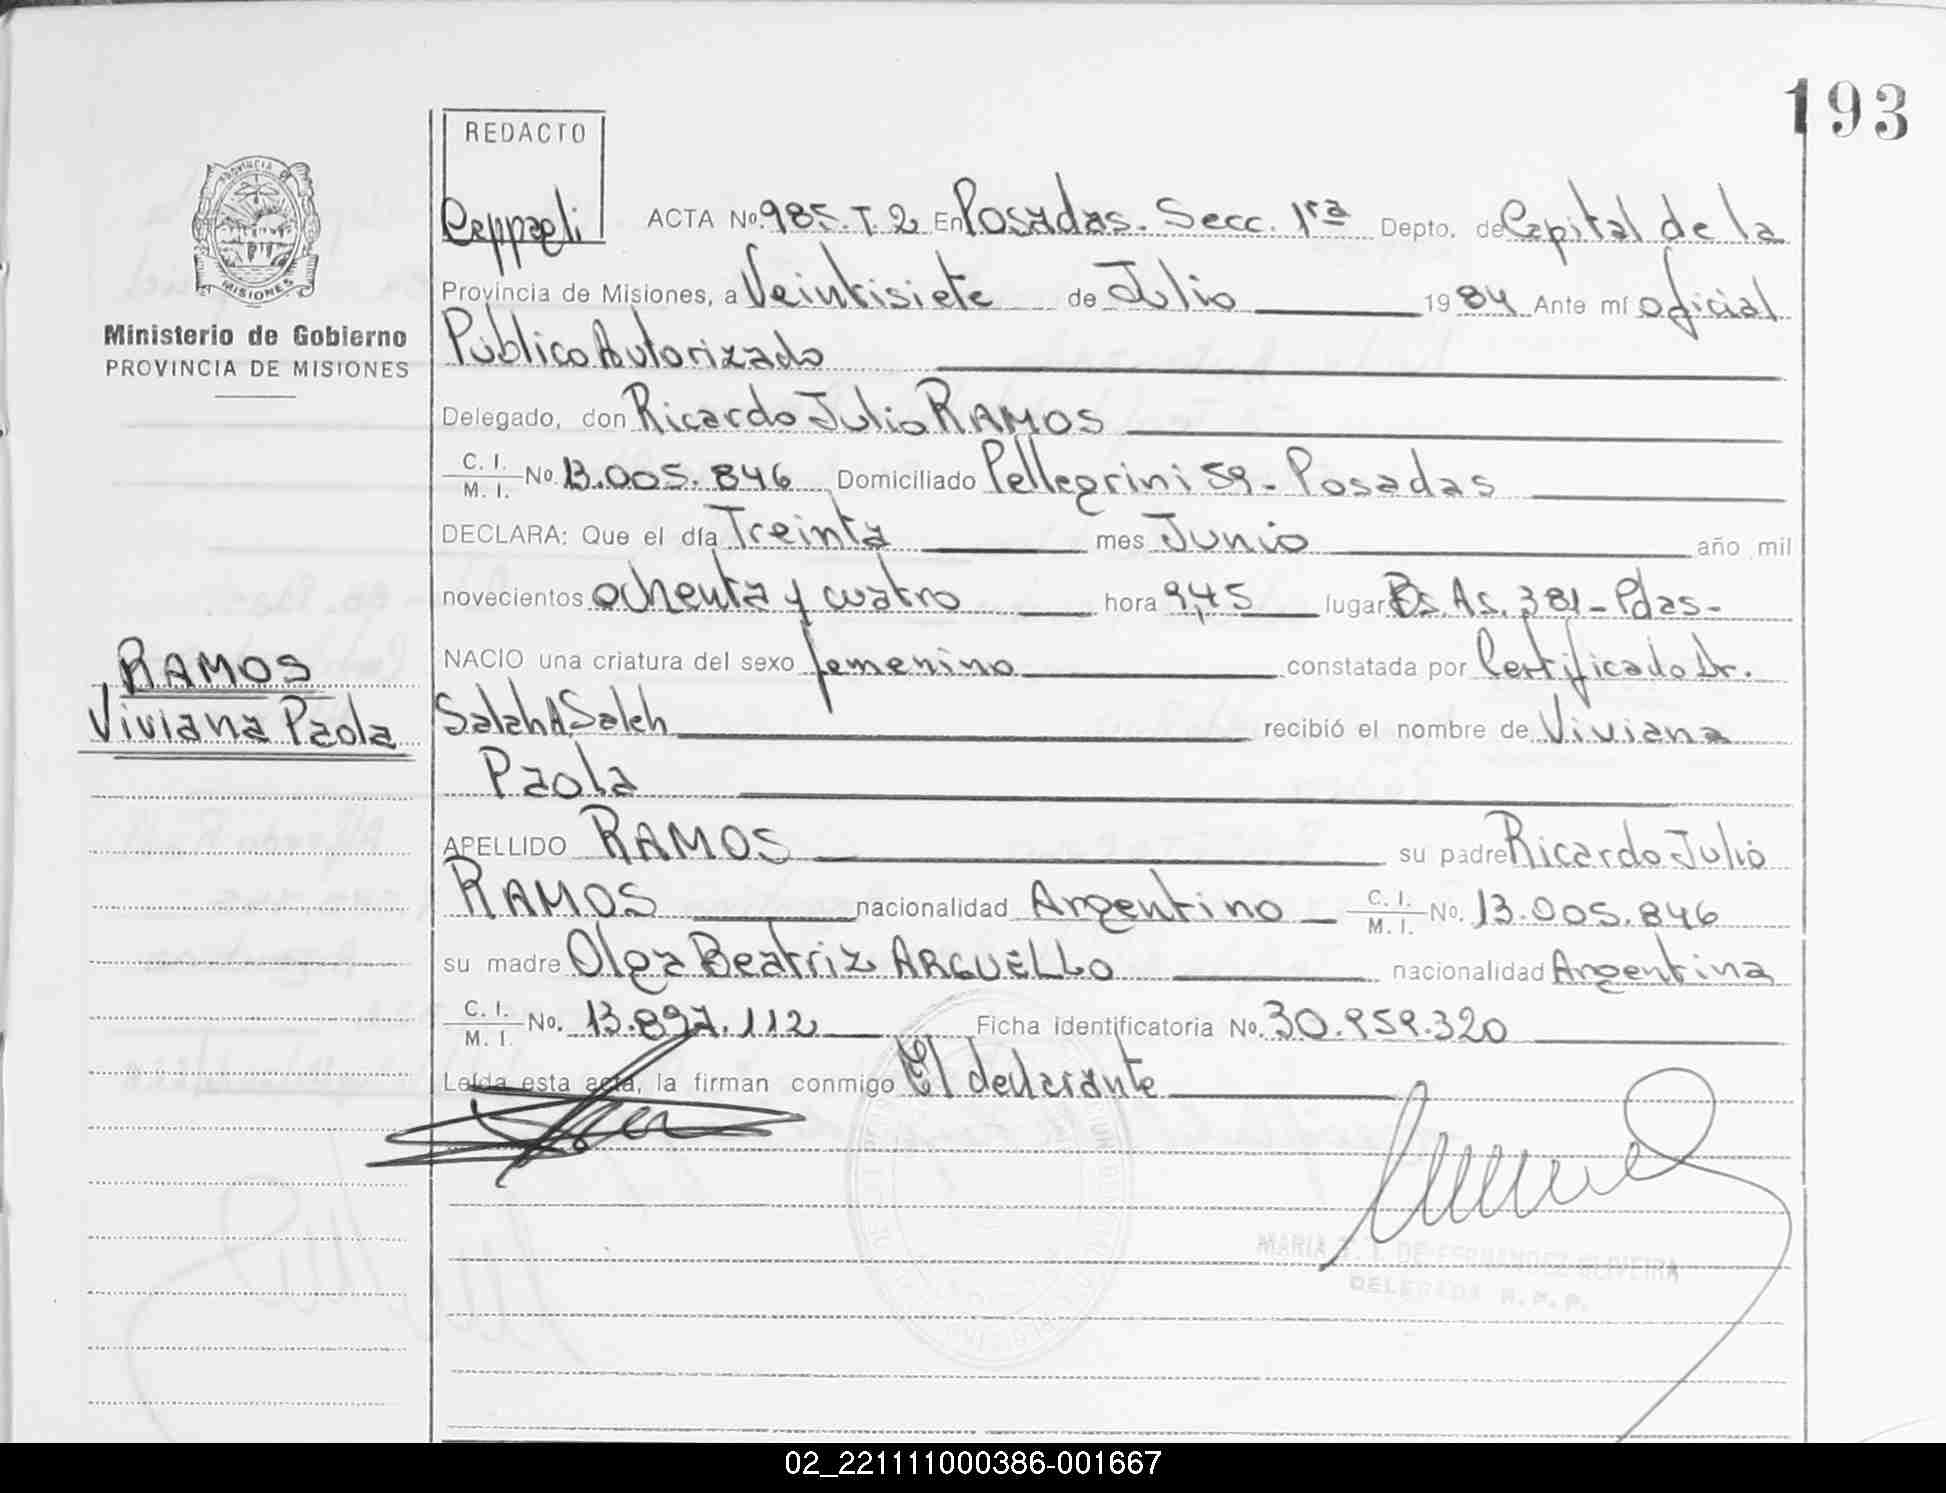 193
REDACTO
Ceppaeli
PROVINCIA DE
MISIONES
Ministerio de Gobierno
PROVINCIA DE MISIONES
ACTA No. 985.T.2 En Posadas. Secc. 1ra Depto. de Capital de la
Provincia de Misiones, a Veintisiete de Julio 1984 Ante mí oficial
Público Autorizado
Delegado, don Ricardo Julio RAMOS
C. I. M. I. No. 13.005.846 Domiciliado Pellegrini 59 - Posadas
DECLARA: Que el día Treinta mes Junio año mil
novecientos ochenta y cuatro hora 9,45 lugar Bs. As. 381 - Pdas -
NACIO una criatura del sexo femenino constatada por Certificado Dr.
Saleh A Saleh recibió el nombre de Viviana
Paola
RAMOS
Viviana Paola
APELLIDO RAMOS su padre Ricardo Julio
RAMOS nacionalidad Argentino C. I. M. I. No. 13.005.846
su madre Olga Beatriz ARGUELLO nacionalidad Argentina
C. I. M. I. No. 13.897.112 Ficha identificatoria No. 30.959.320
Leída esta acta, la firman conmigo El declarante
DE FERNANDEZ OLIVEIRA
DELEGADA R.P.P.
02_221111000386-001667